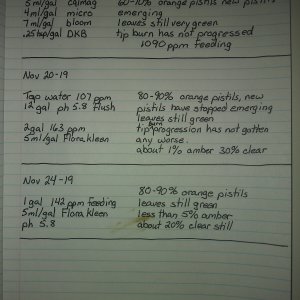 5ml/gal calmag 60-70% orange pistils new pistils
4ml/gal micro emerging
7ml/gal bloom leaves still very green
.25tsp/gal DKB tip burn has not progressed
1090 ppm feeding
Nov 20-19
Tap water 107 ppm 80-90% orange pistils, new
12 gal ph 5.8 flush pistils have stopped emerging
leaves still green
2gal 163 ppm tip burn progression has not gotten
5ml/gal Flora kleen any worse.
about 1% amber 30% clear
Nov 24-19
80-90% orange pistils
1 gal 142 ppm feeding leaves still green
5ml/gal Flora Kleen less than 5% amber
ph 5.8 about 20% clear still